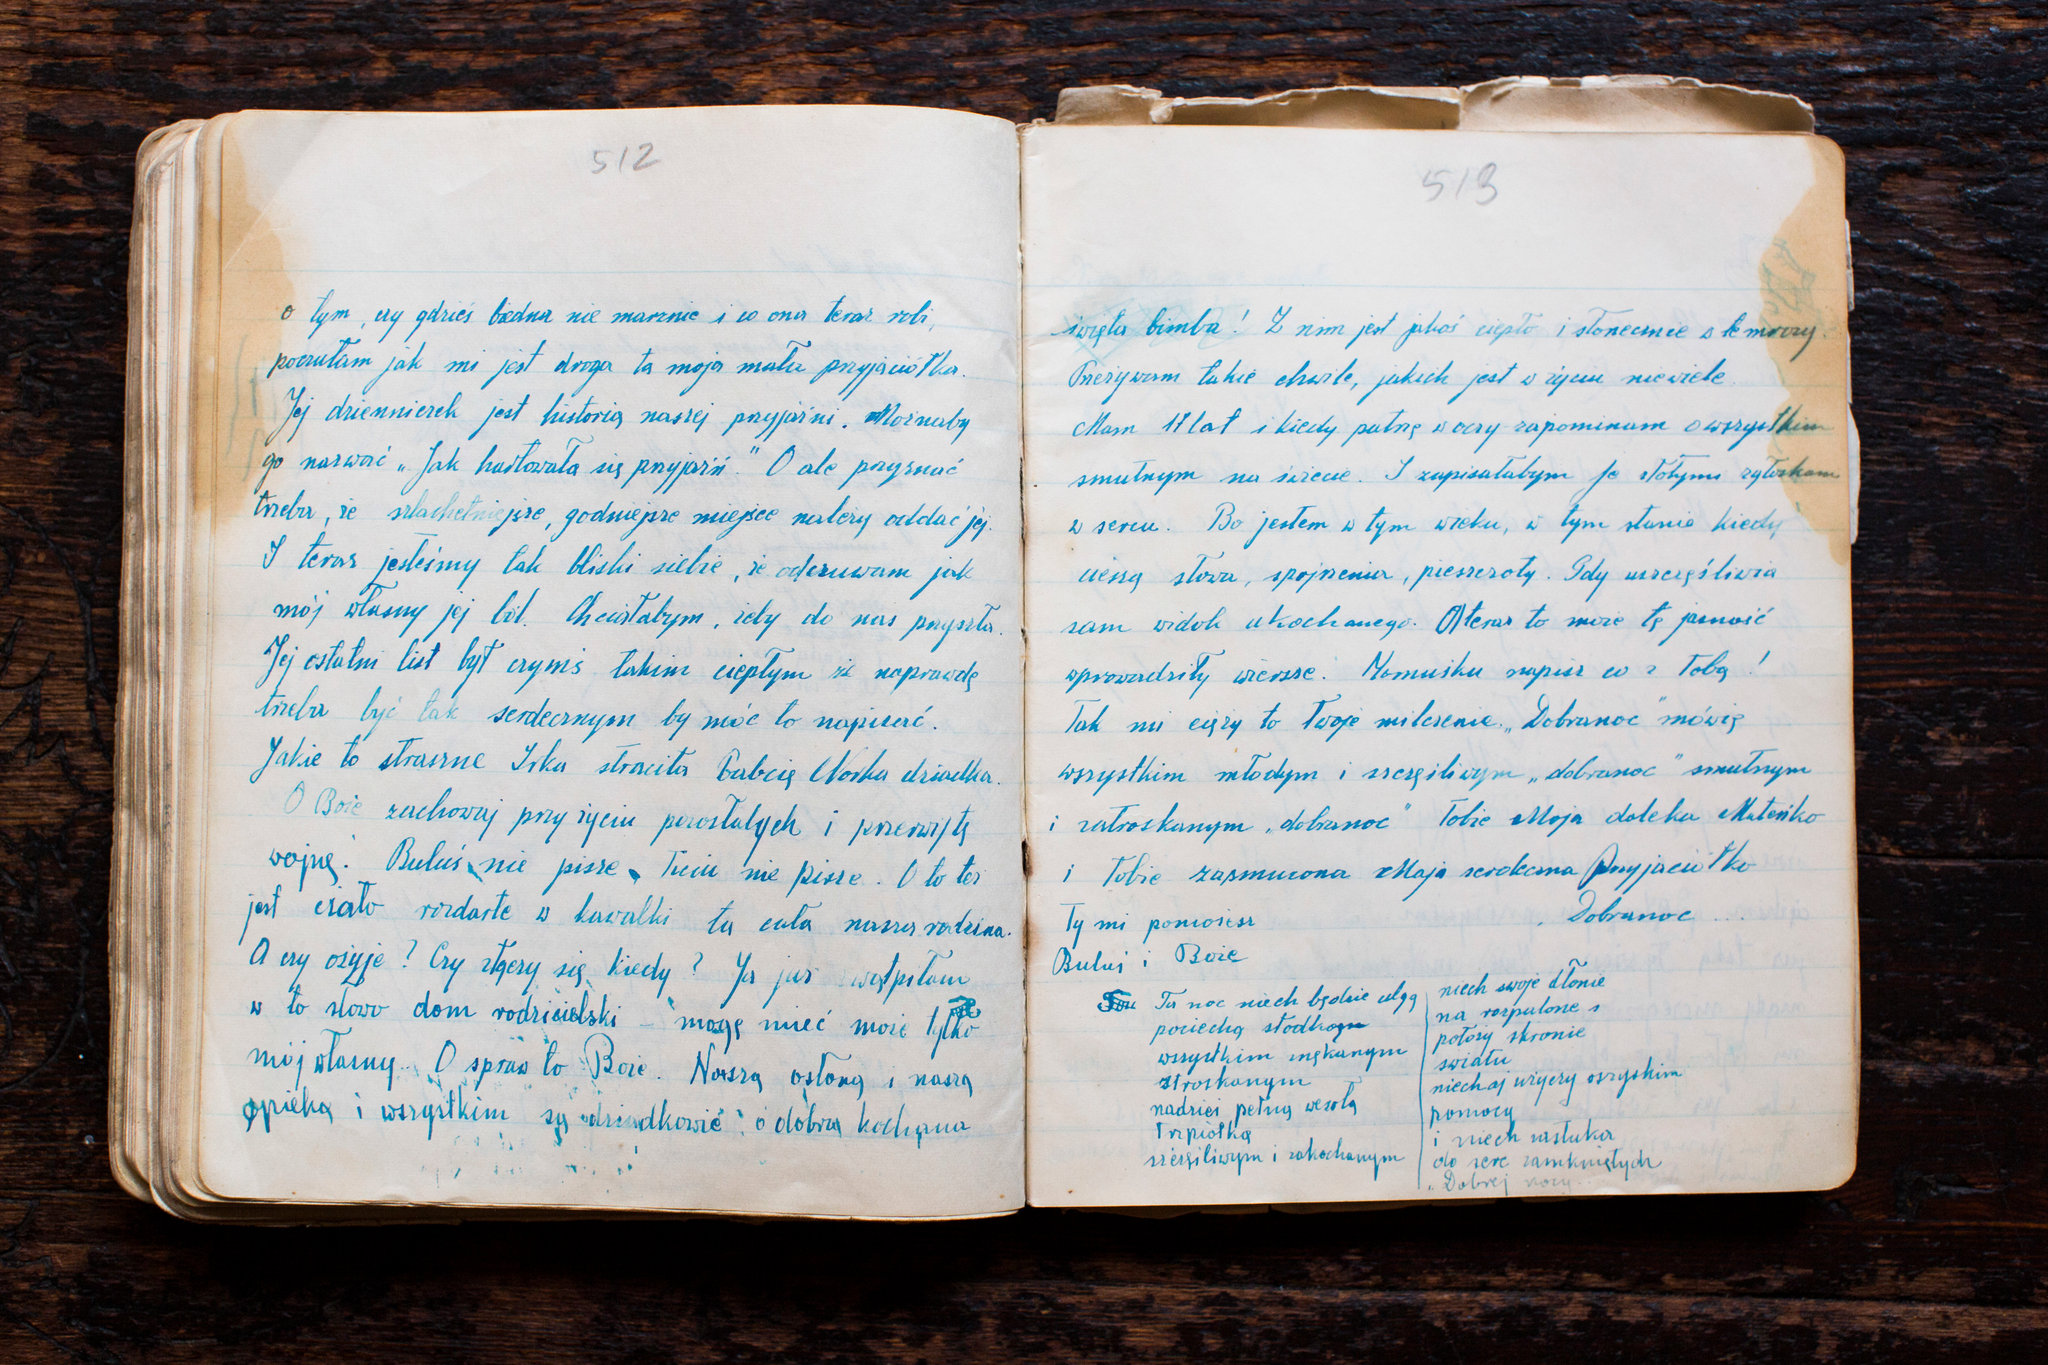 512
o tym, czy gdzieś biedna nie marznie i co ona teraz robi,
poczułam jak mi jest droga ta moja mała przyjaciółka.
Jej dzienniczek jest historią naszej przyjaźni. Możnaby
go nazwać „Jak hartowała się przyjaźń." O ale przyznać
trzeba, że szlachetniejsze, godniejsze miejsce należy oddać jej.
I teraz jesteśmy tak bliski siebie, że odczuwam jak
mój własny jej ból. Chciałabym, żeby do nas przyszła.
Jej ostatni list był czymś takim ciepłym że naprawdę
trzeba być tak serdecznym by móc to napisać.
Jakie to straszne Irka straciła Babcię Norka dziadka.
O Boże zachowaj przy życiu pozostałych i przerwij tę
wojnę. Buluś nie pisze, Ticiu nie pisze. O to też
jest ciało rozdarte w kawałki ta cała nasza rodzina.
A czy ożyje? Czy złączy się kiedy? Ja już zwątpiłam
w to słowo dom rodzicielski – mogę mieć może tylko
mój własny. O spraw to Boże. Naszą osłoną i naszą
opieką i wszystkim są dziadkowie o dobra kochana
513
święta bimba! Z nim jest jakoś ciepło i słonecznie a te mroczy.
Przeżywam takie chwile, jakich jest w życiu niewiele.
Mam 17 lat i kiedy patrzę w oczy zapominam o wszystkim
smutnym na świecie. I zapisałabym je złotymi zgłoskami
w sercu. Bo jestem w tym wieku, w tym stanie kiedy
cieszą słowa, spojrzenia, pieszczoty. Gdy uszczęśliwia
sam widok ukochanego. A teraz to może tę jasność
wprowadziły wiersze. Mamuśku napisz co z Tobą!
Tak mi ciąży to Twoje milczenie. „Dobranoc" mówię
wszystkim młodym i szczęśliwym „dobranoc" smutnym
i zatroskanym „dobranoc" Tobie Moja daleka Mateńko
i Tobie zasmucona Moja serdeczna Przyjaciółko
Ty mi pomożesz Dobranoc
Buluś i Boże
Ta noc niech będzie ulgą
pociechą słodką
wszystkim znękanym
ztroskanym
nadziei pełną wesołą
trzpiotką
szczęśliwym i zakochanym
niech swoje dłonie
na rozpalone
położy skronie
światu
niechaj użyczy wszystkim
pomocy
i niech zastuka
do serc zamkniętych
„Dobrej nocy